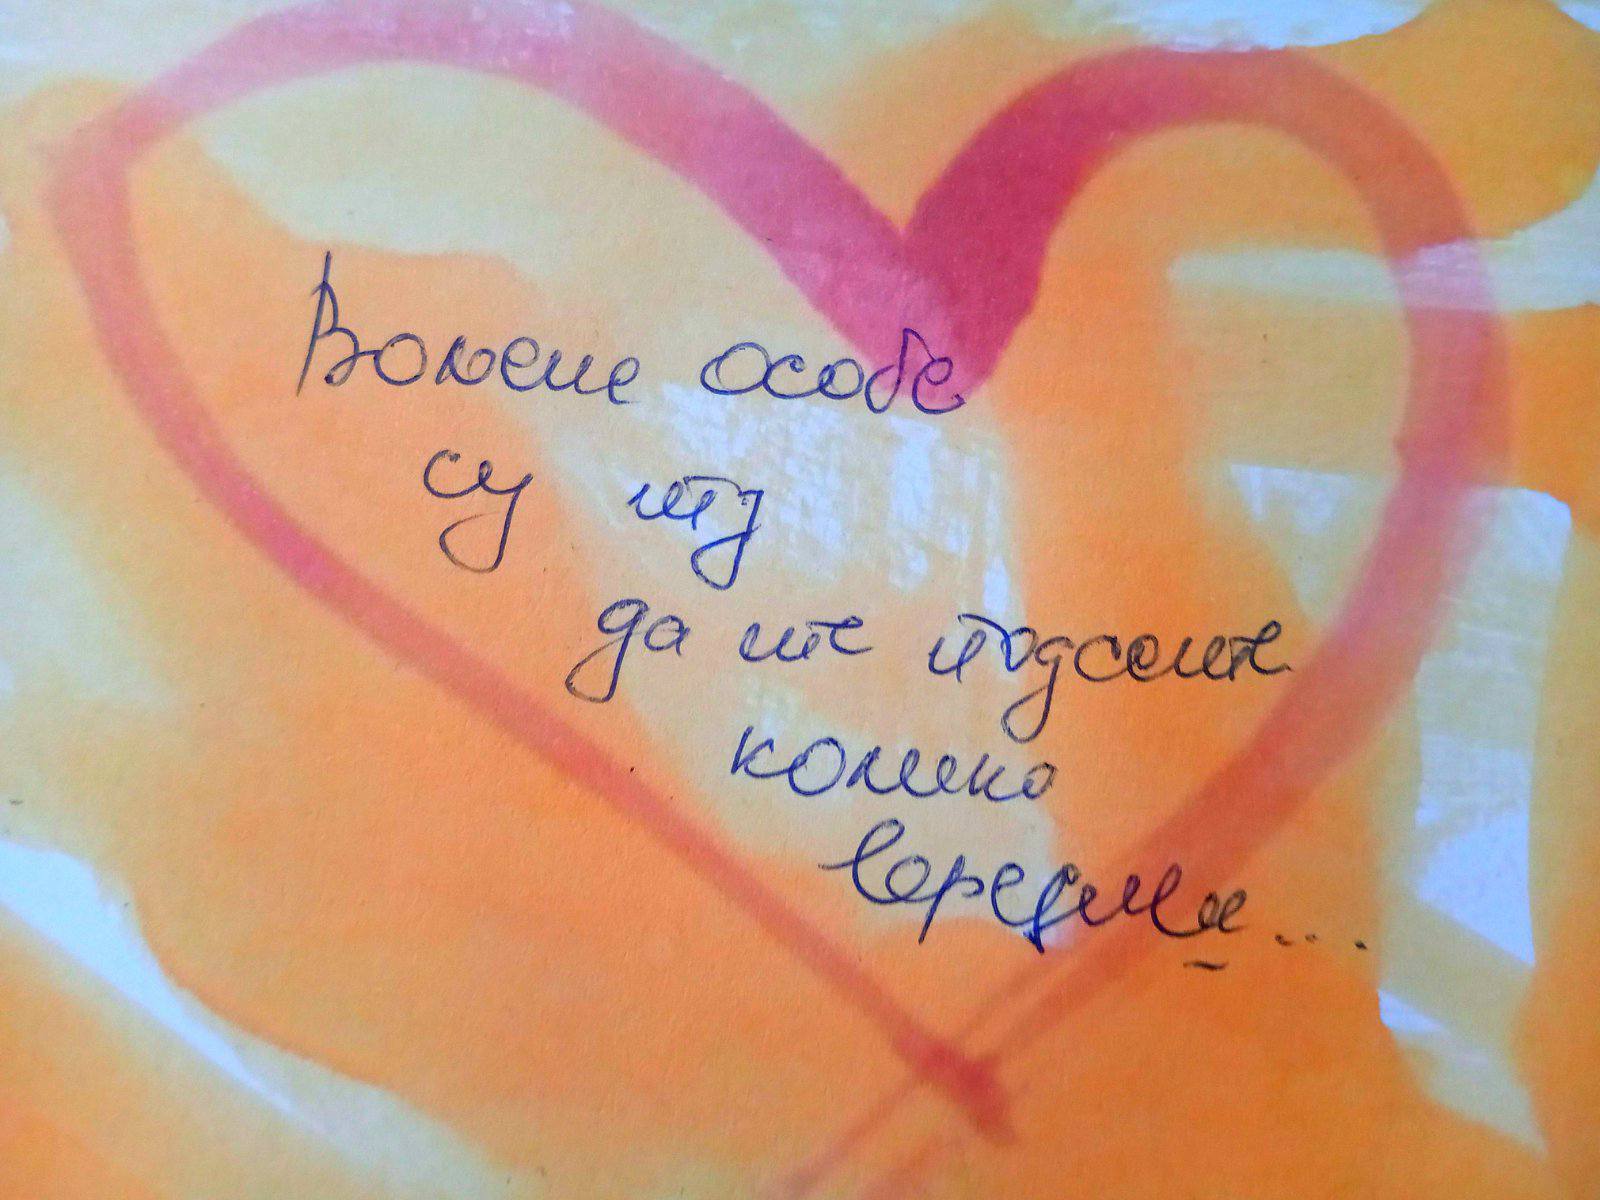 Вољене особе
су ту
да те подсете
колико
вредиш...